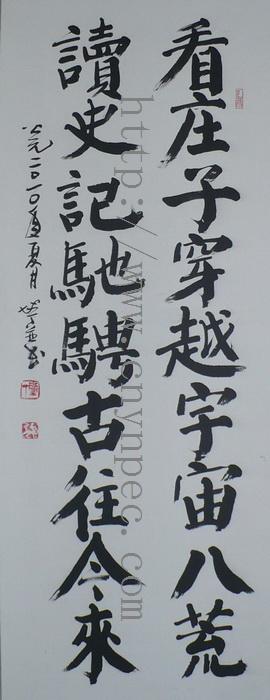 看庄子穿越宇宙八荒
讀史記馳騁古往今來
公元二〇一〇年夏月
http://www.cnynpec.com